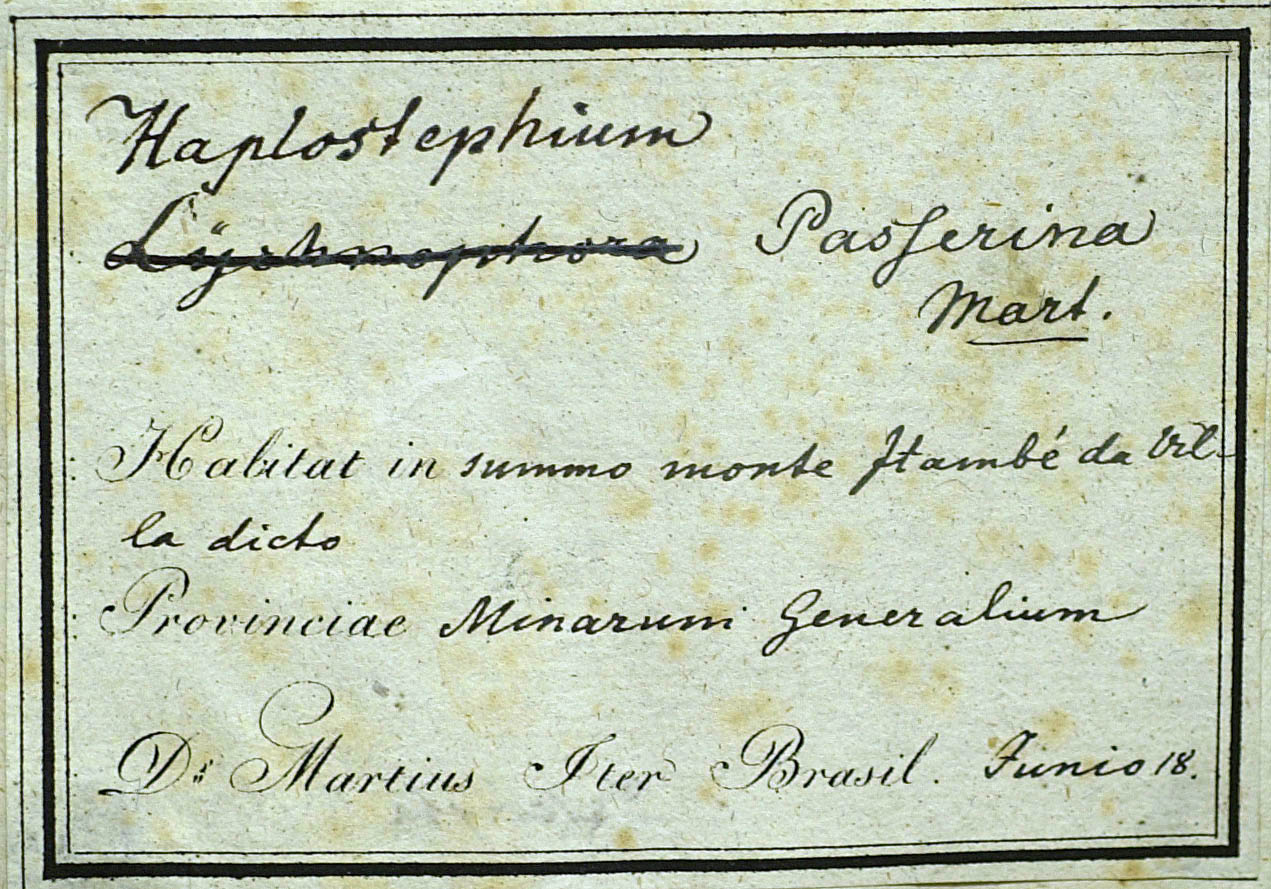 Haplostephium
Lÿchnophora Passerina
Mart.
Habitat in summo monte Itambé da Vil-
la dicto
Provinciae Minarum Generalium
Dr. Martius Iter Brasil. Junio 18.